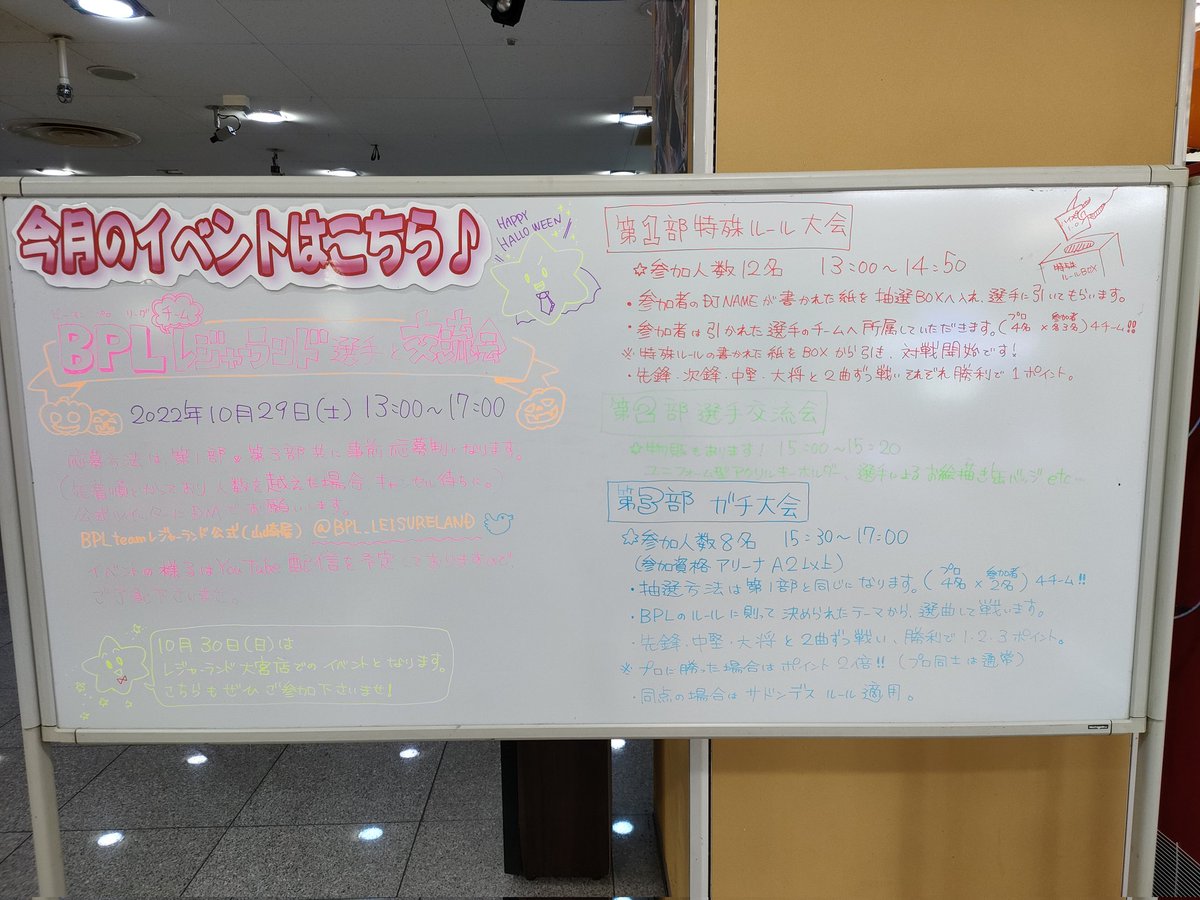 今月のイベントはこちら♪
HAPPY
HALLOWEEN
ビーマニ プロ リーグ
チーム
BPL レジャーランド選手と交流会
2022年10月29日(土) 13:00～17:00
応募方法は第1部・第3部共に事前応募制になります。
(先着順となっており人数を越えた場合キャンセル待ちに。)
公式ツイッターにDMでお願いします。
BPL teamレジャーランド公式(山崎居) @BPL_LEISURELAND
イベントの様子はYouTube配信を予定しておりますので
ご了承下さいませ。
10月30日(日)は
レジャーランド大宮店でのイベントとなります。
こちらもぜひご参加下さいませ!
第1部 特殊ルール大会
☆参加人数12名 13:00～14:50
・参加者のDJ NAMEが書かれた紙を抽選BOXへ入れ、選手に引いてもらいます。
・参加者は引かれた選手のチームへ所属していただきます。(プロ4名×参加者各3名)4チーム!!
※特殊ルールの書かれた紙をBOXから引き、対戦開始です!
・先鋒・次鋒・中堅・大将と2曲ずつ戦いそれぞれ勝利で1ポイント。
特殊
ルールBOX
第2部 選手交流会
☆物販もあります! 15:00～15:20
ユニフォーム型アクリルキーホルダー、選手によるお絵描き缶バッジetc…
第3部 ガチ大会
☆参加人数8名 15:30～17:00
(参加資格 アリーナA2以上)
・抽選方法は第1部と同じになります。(プロ4名×参加者2名)4チーム!!
・BPLのルールに則って決められたテーマから、選曲して戦います。
・先鋒・中堅・大将と2曲ずつ戦い、勝利で1・2・3ポイント。
※プロに勝った場合はポイント2倍!!(プロ同士は通常)
・同点の場合はサドンデスルール適用。